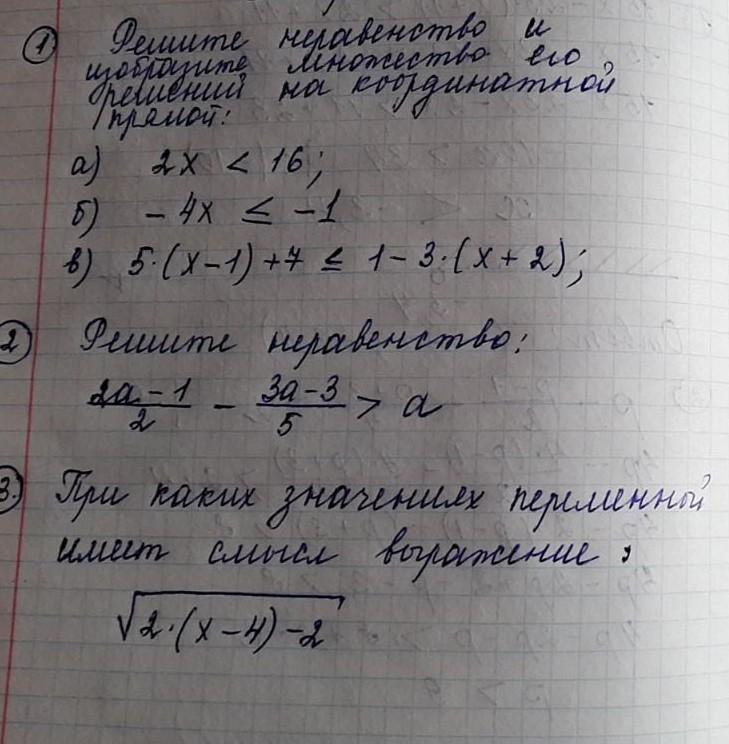 1 Решите неравенство и
изобразите множество его
решений на координатной
прямой:
а) 2x < 16;
б) - 4x ≤ -1
в) 5·(x-1)+7 ≤ 1-3·(x+2);
2 Решите неравенство:
(2a-1)/2 - (3a-3)/5 > a
3. При каких значениях переменной
имеет смысл выражение:
√(2·(x-4)-2)